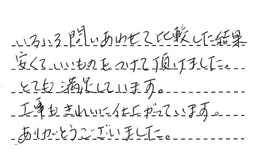 いろいろ問いあわせて比較した結果
安くていいものをつけて頂けました。
とても満足しています。
工事もきれいに仕上がっています。
ありがとうございました。